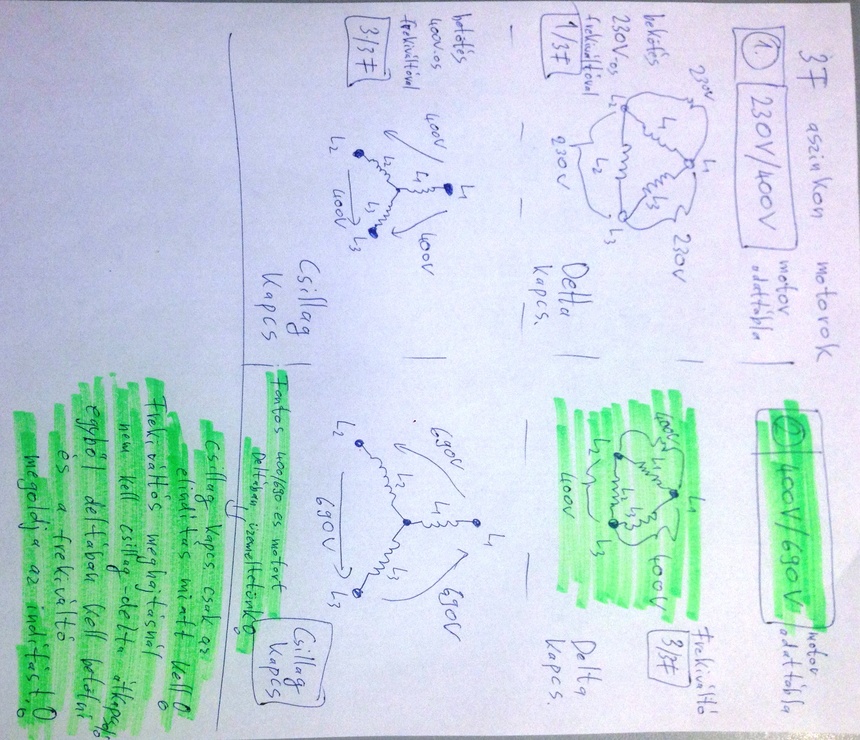 3F aszinkon motorok
① 230V/400V
motor
adattábla
230V
L1
230V
L1
L3
L2
L2
L3
230V
bekötés
230V-os
frekiváltóval
1/3F
Delta
kapcs.
400V
L1
400V
L1
L2
L3
L2
400V
L3
bekötés
400V-os
frekiváltóval
3/3F
Csillag
kapcs
② 400V/690V
motor
adattábla
400V
L1
400V
L2
L3
400V
Frekiváltó
3/3F
Delta
kapcs.
690V
L1
690V
L1
L2
L3
L2
690V
L3
Csillag
kapcs
Fontos 400/690-es motort
Deltában üzemeltetünk!
Csillag kapcs. csak az
elindítás miatt kell!
Frekiváltós meghajtásnál
nem kell csillag-delta átkapcsoló
egyből deltában kell bekötni
és a frekiváltó
megoldja az indítást!